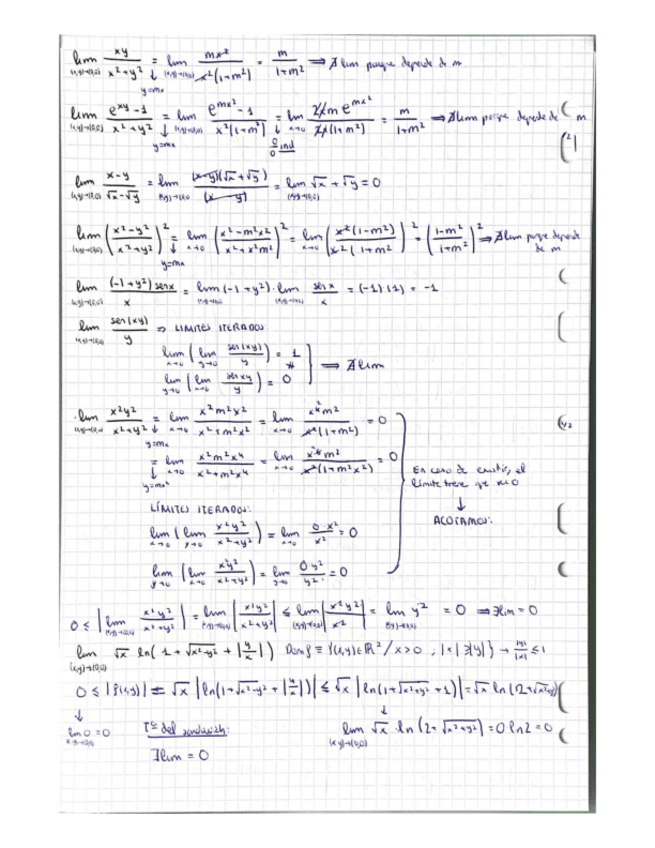 lim (x,y)→(0,0) xy / x²+y² = (y=mx) lim (x,y)→(0,0) mx² / x²(1+m²) = m / 1+m² ⟹ ∄ lim porque depende de m
lim (x,y)→(0,0) e^xy -1 / x²+y² = (y=mx) lim (x,y)→(0,0) e^mx² -1 / x²(1+m²) = (0/0 ind) lim x→0 2xm e^mx² / 2x(1+m²) = m / 1+m² ⟹ ∄ lim porque depende de m
lim (x,y)→(0,0) x-y / √x-√y = lim (x,y)→(0,0) (x-y)(√x+√y) / (x-y) = lim (x,y)→(0,0) √x+√y = 0
lim (x,y)→(0,0) (x²-y² / x²+y²)² = (y=mx) lim x→0 (x²-m²x² / x²+x²m²)² = lim x→0 (x²(1-m²) / x²(1+m²)² = (1-m² / 1+m²)² ⟹ ∄ lim porque depende de m
lim (x,y)→(0,0) (-1+y²) senx / x = lim (x,y)→(0,0) (-1+y²) · lim (x,y)→(0,0) sen x / x = (-1)(1) = -1
lim (x,y)→(0,0) sen(xy) / y ⟹ LIMITES ITERADOS
lim x→0 (lim y→0 sen(xy) / y) = 1
≠ ⟹ ∄ lim
lim y→0 (lim x→0 sen xy / y) = 0
· lim (x,y)→(0,0) x²y² / x²+y² = (y=mx) lim x→0 x²m²x² / x²+m²x² = lim x→0 x⁴m² / x²(1+m²) = 0
= (y=mx²) lim x→0 x²m²x⁴ / x²+m²x⁴ = lim x→0 x⁶m² / x²(1+m²x²) = 0
En caso de existir, el límite tiene que ser 0
↓
ACOTAMOS:
LÍMITES ITERADOS:
lim x→0 (lim y→0 x²y² / x²+y²) = lim x→0 0·x² / x² = 0
lim y→0 (lim x→0 x²y² / x²+y²) = lim y→0 0·y² / y² = 0
0 ≤ |lim (x,y)→(0,0) x²y² / x²+y²| = lim (x,y)→(0,0) |x²y² / x²+y²| ≤ lim (x,y)→(0,0) |x²y² / x²| = lim (x,y)→(0,0) y² = 0 ⟹ ∃ lim = 0
lim (x,y)→(0,0) √x ln(1+√x²+y² + |y/x|) Dom f = {(x,y)∈ℝ² / x>0 , |x|≥|y|} → |y|/|x| ≤ 1
0 ≤ |f(x,y)| = √x |ln(1+√x²+y² + |y/x|)| ≤ √x |ln(1+√x²+y² +1)| = √x ln(2+√x²+y²)
↓ ↓
lim (x,y)→(0,0) 0 = 0 Tª del sandwich: lim (x,y)→(0,0) √x · ln(2+√x²+y²) = 0 ln2 = 0
∃ lim = 0